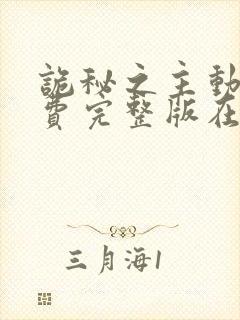 詭秘之主動
費完整版在
三月海1